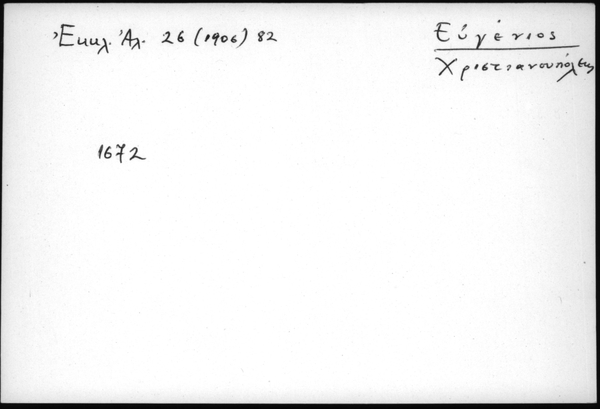 Ἐκκλ. Ἀλ. 26 (1906) 82
Εὐγένιος
Χριστιανουπόλεως
1672